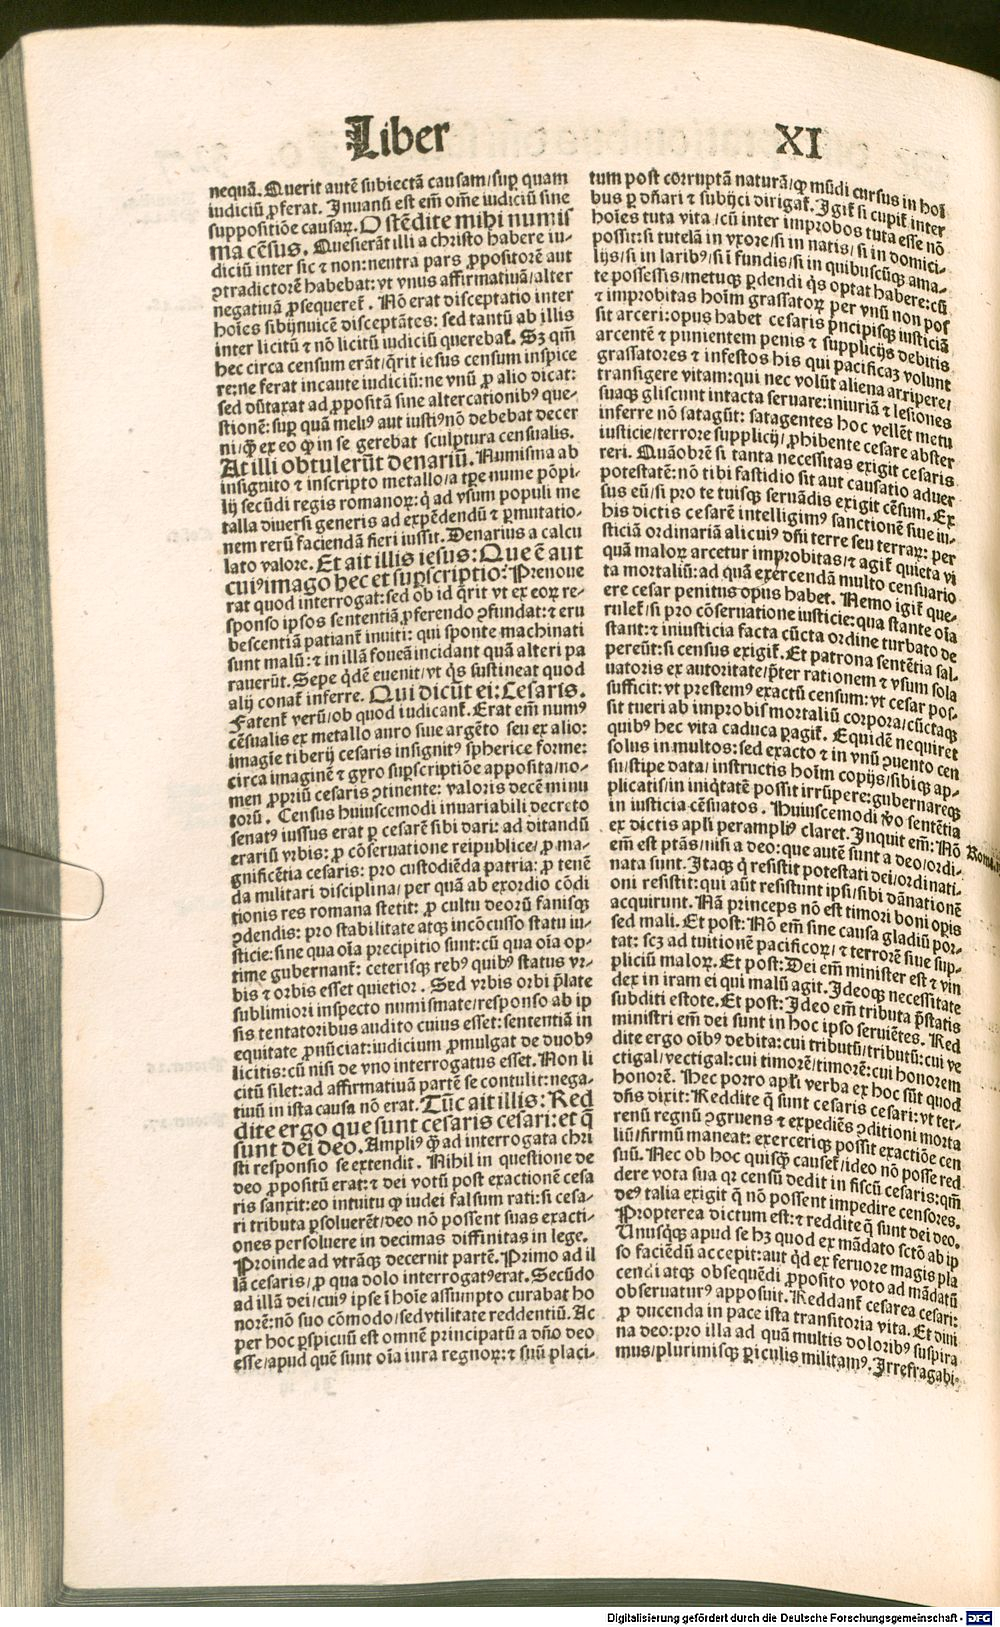 Liber XI
nequā. Querit autē subiectā causam/sup̱ quam
iudiciū ꝓferat. Inuanū est em̄ om̄e iudiciū sine
suppositiōe causaꝝ. Ostēdite mihi numis
ma cēsus. Quesierāt illi a christo habere iu-
diciū inter sic ⁊ non: neutra pars ꝓpositorē aut
ꝯtradictorē habebat: vt vnus affirmatiuā/alter
negatiuā ꝓsequeret̄. Nō erat disceptatio inter
hoīes sibijnuicē disceptātes: sed tantū ab illis
inter licitū ⁊ nō licitū iudiciū querebat̄. Sꝫ qm̄
hec circa censum erāt/q̄rit iesus censum inspice
re: ne ferat incaute iudiciū: ne vnū ꝓ alio dicat:
sed dūtaxat ad ꝓpositā sine altercationibꝰ que-
stionē: sup̱ quā meliꝰ aut iustiꝰ nō debebat decer
ni/ꝙ̄ ex eo ꝙ in se gerebat sculptura censualis.
At illi obtulerūt denariū. Numisma ab
insignito ⁊ inscripto metallo/a tp̄re nume pōpi-
lij secūdi regis romanoꝝ: q̇ ad vsum populi me
talla diuersi generis ad expēdendū ⁊ ꝑmutatio-
nem rerū faciendā fieri iussit. Denarius a calcu
lato valore. Et ait illis iesus: Que ē aut
cuiꝰ imago hec et suꝑscriptio? Prenoue
rat quod interrogat: sed ob id q̄rit vt ex eoꝝ re-
sponso ipsos sententiā ꝓferendo ꝯfundat: ⁊ eru
bescentiā patiant̄ inuiti: qui sponte machinati
sunt malū: ⁊ in illā foueā incidant quā alteri pa
rauerūt. Sepe q̇dē euenit/vt q̇s sustineat quod
alij conat̄ inferre. Qui dicūt ei: Cesaris.
Fatent̄ verū/ob quod iudicant̄. Erat em̄ numꝰ
cēsualis ex metallo auro siue argēto seu ex alio:
imagīe tiberij cesaris insignitꝰ spherice forme:
circa imaginē ⁊ gyro suꝑscriptiōe apposita/no-
men ꝓpriū cesaris ꝯtinente: valoris decē minu
torū. Census huiuscemodi inuariabili decreto
senatꝰ iussus erat ꝑ cesarē sibi dari: ad ditandū
erariū vrbis: ꝓ cōseruatione reipublice/ꝓ ma-
gnificētia cesaris: pro custodiēda patria: ꝓ tenē
da militari disciplina/per quā ab exordio cōdi
tionis res romana stetit: ꝓ cultu deorū fanisqꝫ
ꝯdendis: pro stabilitate atqꝫ incōcusso statu iu-
sticie: sine qua oīa precipitio sunt: cū qua oīa op-
time gubernant̄: ceterisqꝫ rebꝰ quibꝰ status vr-
bis ⁊ orbis esset quietior. Sed vrbis orbi p̄late
sublimiori inspecto numismate/responso ab ip
sis tentatoribus audito cuius esset: sententiā in
equitate ꝓnūciat: iudicium ꝓmulgat de duobꝰ
licitis: cū nisi de vno interrogatus esset. Non li
citū silet: ad affirmatiuā partē se contulit: nega-
tiuū in ista causa nō erat. Tūc ait illis: Red
dite ergo que sunt cesaris cesari: et q̄
sunt dei deo. Ampliꝰ ꝙ̄ ad interrogata chri
sti responsio se extendit. Nihil in questione de
deo ꝓpositū erat: ⁊ dei votū post exactionē cesa
ris sanxit: eo intuitu ꝙ iudei falsum rati: si cesa-
ri tributa ꝑsoluerēt/deo nō possent suas exacti-
ones persoluere in decimas diffinitas in lege.
Proinde ad vtrāqꝫ decernit partē. Primo ad il
lā cesaris/ꝓ qua dolo interrogatꝰ erat. Secūdo
ad illā dei/cuiꝰ ipse ī hoīe assumpto curabat ho
norē: nō suo cōmodo/sed vtilitate reddentiū. Ac
per hoc ꝑspicuū est omnē principatū a dn̄o deo
esse/apud quē sunt oīa iura regnoꝝ: ⁊ suū placi-
tum post corruptā naturā/ꝙ mūdi cursus in hoī
bus ꝑ dn̄ari ⁊ subijci dirigat̄. Igit̄ si cupit̄ inter
hoīes tuta vita/cū inter improbos tuta esse nō
possit: si tutelā in vxore/si in natis/si in domici-
lijs/si in laribꝰ/si ī fundis/si in quibuscūqꝫ ama-
te possessis/metuqꝫ ꝑdendi q̇s optat habere: cū
⁊ improbitas hoīm grassatoꝝ per vnū non pos
sit arceri: opus habet cesaris p̄ncipisqꝫ iusticiā
arcentē ⁊ punientem penis ⁊ supplicijs debitis
grassatores ⁊ infestos his qui pacificaꝫ volunt
transigere vitam: qui nec volūt aliena arripere/
suaqꝫ gliscunt intacta seruare: iniuriā ⁊ lesiones
inferre nō satagūt: satagentes hoc vellēt metu
iusticie/terrore supplicij/ꝓhibente cesare abster
reri. Quāobrē si tanta necessitas exigit cesaris
potestatē: nō tibi fastidio sit aut causatio aduer
sus eū/si pro te tuisqꝫ seruādis exigit cēsum. Ex
his dictis cesarē intelligimꝰ sanctionē siue iu-
sticiā ordinariā alicuiꝰ dn̄i terre seu terraꝝ: per
quā maloꝝ arcetur improbitas/⁊ agit̄ quieta vi
ta mortaliū: ad quā exercendā multo censuario
ere cesar penitus opus habet. Nemo igit̄ que-
rulet̄/si pro cōseruatione iusticie: qua stante oīa
stant: ⁊ iniusticia facta cūcta ordine turbato de
pereūt: si census exigit̄. Et patrona sentētia sal-
uatoris ex autoritate/p̄ter rationem ⁊ vsum sola
sufficit: vt prestemꝰ exactū censum: vt cesar pos-
sit tueri ab improbis mortaliū corpora/cūctaqꝫ
quibꝰ hec vita caduca ꝑagit̄. Equidē nequiret
solus in multos: sed exacto ⁊ in vnū ꝯuento cen
su/stipe data/instructis hoīm copijs/sibiqꝫ ap-
plicatis/in iniq̇tatē possit irrūpere: gubernareqꝫ
in iusticia cēsuatos. Huiuscemodi v̄o sentētia
ex dictis apl̄i perampliꝰ claret. Inquit em̄: Nō
em̄ est ptās/nisi a deo: que autē sunt a deo/ordi-
nata sunt. Itaqꝫ q̇ resistit potestati dei/ordinati-
oni resistit: qui aūt resistunt ipsi/sibi dānationē
acquirunt. Nā princeps nō est timori boni oꝑis
sed mali. Et post: Nō em̄ sine causa gladiū por-
tat: scꝫ ad tuitionē pacificoꝝ/⁊ terrorē siue sup-
pliciū maloꝝ. Et post: Dei em̄ minister est ⁊ vin
dex in iram ei qui malū agit. Ideoqꝫ necessitate
subditi estote. Et post: Ideo em̄ tributa p̄statis
ministri em̄ dei sunt in hoc ipso seruiētes. Red
dite ergo oībꝰ debita: cui tributū/tributū: cui ve
ctigal/vectigal: cui timorē/timorē: cui honorem
honorē. Hec porro apl̄i verba ex hoc sūt quod
dn̄s dixit: Reddite q̄ sunt cesaris cesari: vt ter-
renū regnū ꝯgruens ⁊ expediēs ꝯditioni morta
liū/firmū maneat: exerceriqꝫ possit exactiōe cen
suū. Nec ob hoc quisqꝙ̄ causet̄/ideo nō posse red
dere vota sua qꝛ censū dedit in fiscū cesaris: qm̄
deꝰ talia exigit q̄ nō possent impedire censores.
Propterea dictum est: ⁊ reddite q̄ sunt dei deo.
Vnusq̇sqꝫ apud se hꝫ quod ex mādato sctō ab ip
so faciēdū accepit: aut q̇d ex feruore magis pla
cendi atqꝫ obsequēdi ꝓposito voto ad mādatū
obseruaturꝰ apposuit. Reddant̄ cesarea cesari:
ꝓ ducenda in pace ista transitoria vita. Et diui
na deo: pro illa ad quā multis doloribꝰ suspira
mus/plurimisqꝫ ꝑiculis militamꝰ. Irrefragabi-
Digitalisierung gefördert durch die Deutsche Forschungsgemeinschaft - DFG